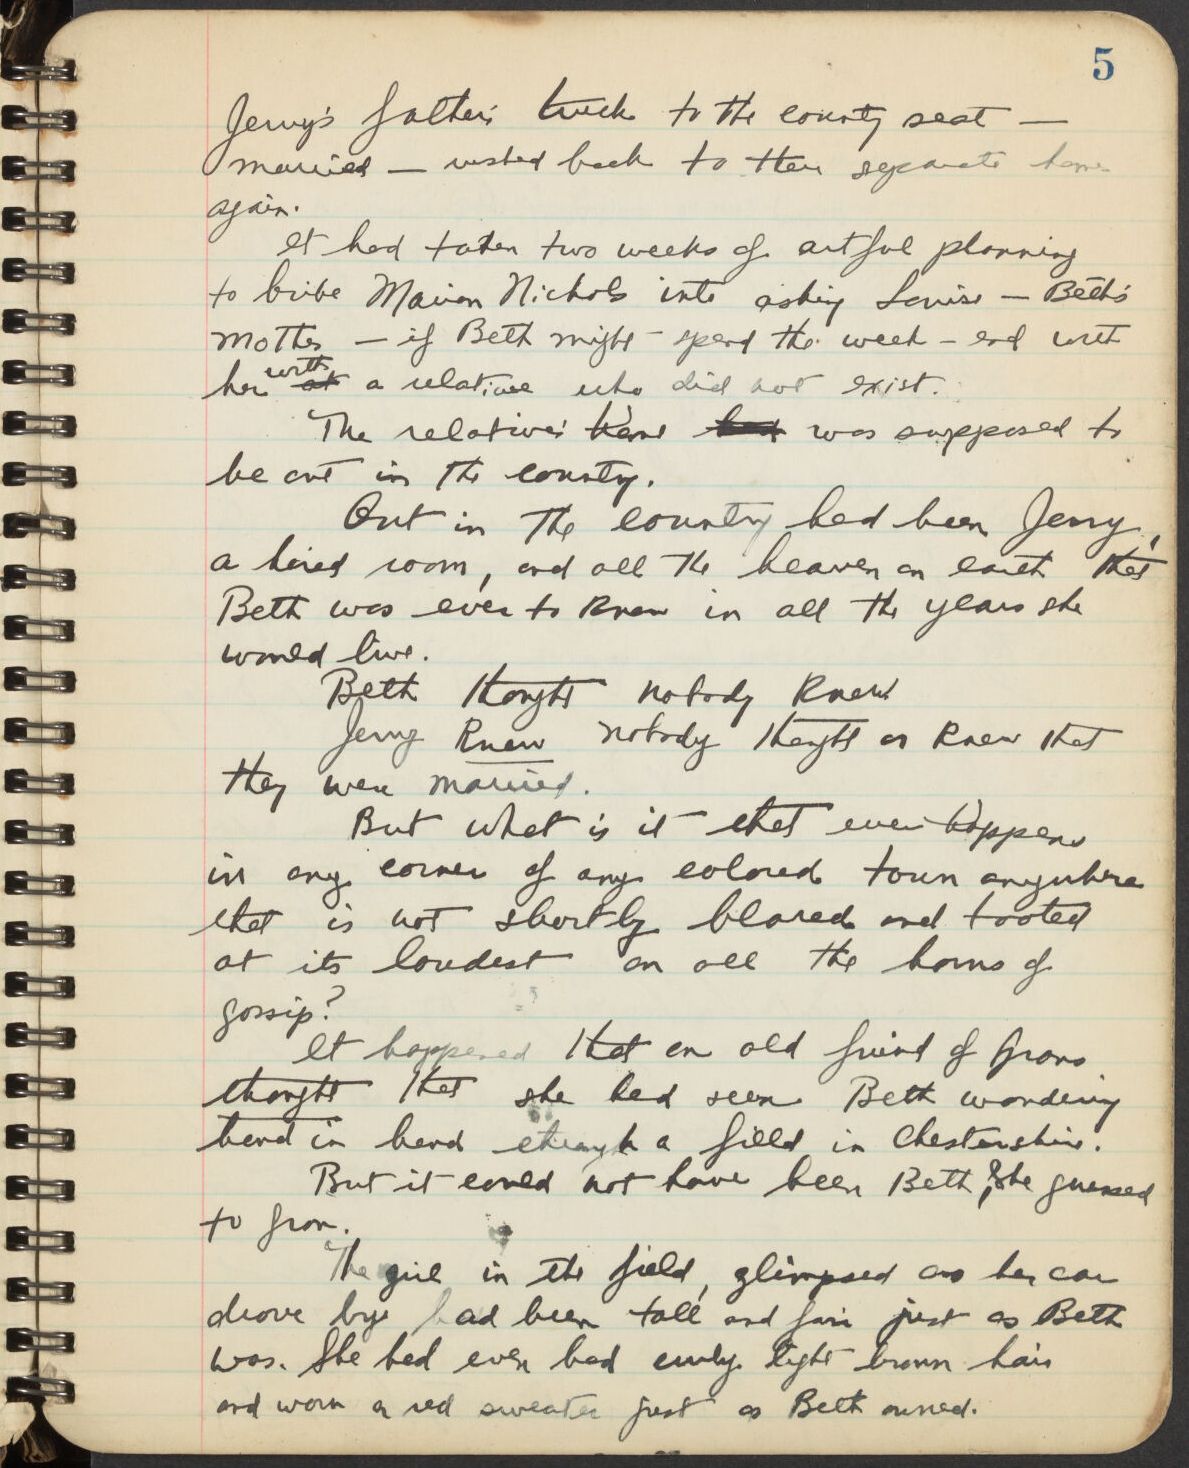 5
Jerry's father's truck to the county seat —
married — rushed back to their separate homes
again.
It had taken two weeks of artful planning
to bribe Marion Nichols into asking Louise — Beth's
mother — if Beth might spend the week-end with
her with at a relative who did not exist.
The relative's home had was supposed to
be out in the country.
Out in the country had been Jerry,
a hired room, and all the heaven on earth that
Beth was ever to know in all the years she
would live.
Beth thought nobody knew
Jerry knew nobody thought or knew that
they were married.
But what is it that ever happens
in any corner of any colored town anywhere
that is not shortly blared and tooted
at its loudest on all the horns of
gossip?
It happened that an old friend of Grans
thought that she had seen Beth wandering
hand in hand through a field in Chestershire.
But it could not have been Beth, she guessed
to Gran.
The girl in the field, glimpsed as her car
drove bye had been tall and fair just as Beth
was. She had even had curly light brown hair
and worn a red sweater just as Beth owned.